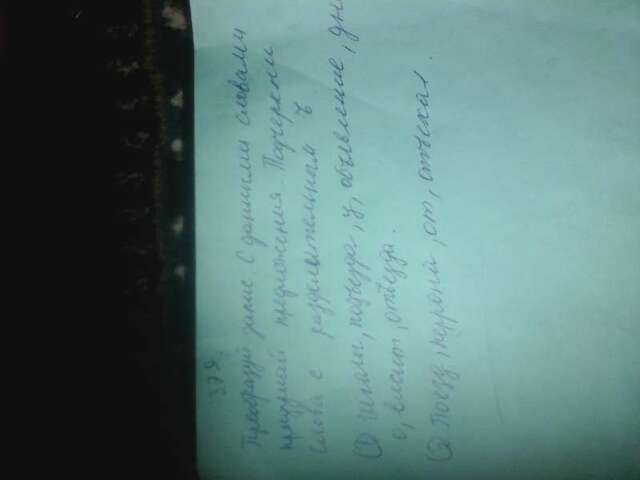 378.
Преобразуй запис. С данными словами
придумай предложения. Подчеркни
слова с разделительным ъ
① школы, подъезда, у, объявление, дне
о, висит, отъезда.
② Поезд, перрона, от, отъехал.